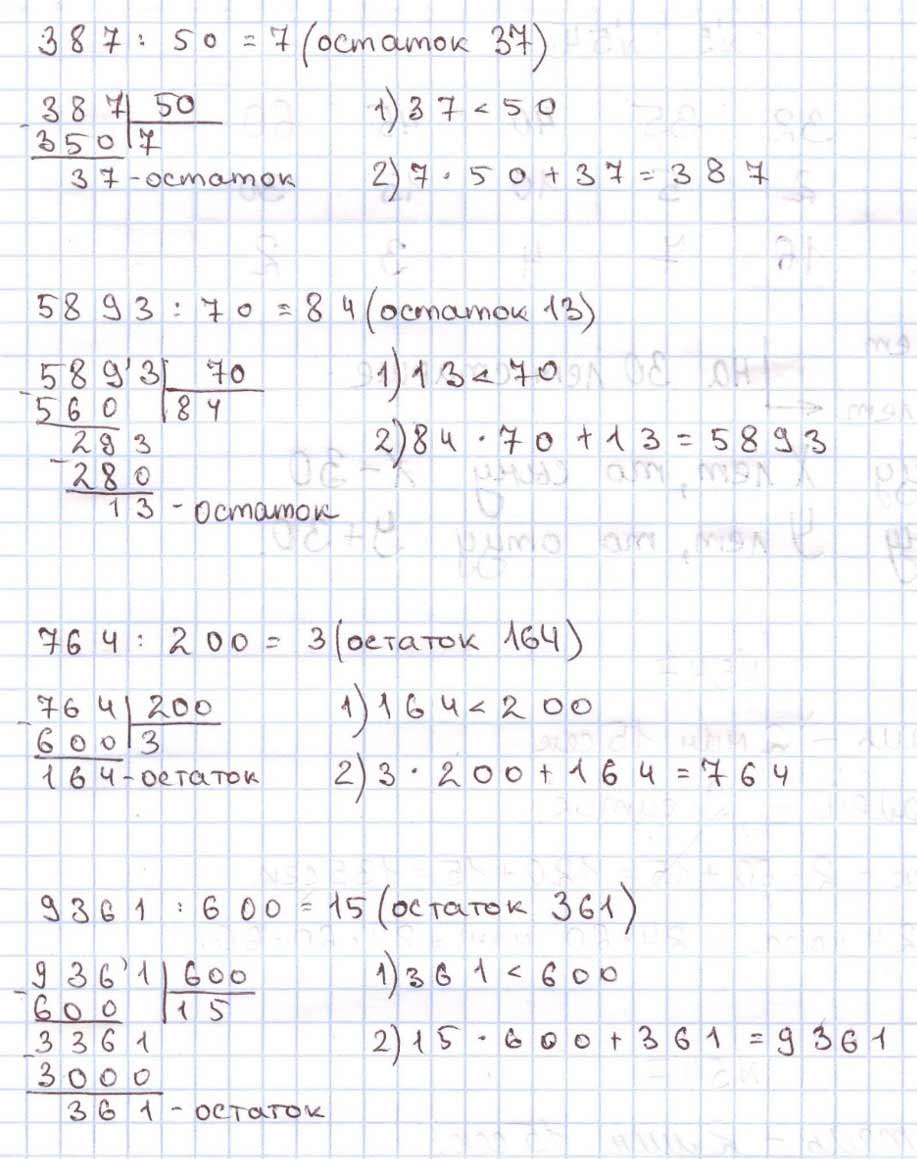 387 : 50 = 7 (остаток 37)
387 50 1) 37 < 50
- 350 7
37 - остаток 2) 7 · 50 + 37 = 387
5893 : 70 = 84 (остаток 13)
589'3 70 1) 13 < 70
- 560 84
293 2) 84 · 70 + 13 = 5893
- 280
13 - остаток
764 : 200 = 3 (остаток 164)
764 200 1) 164 < 200
- 600 3
164 - остаток 2) 3 · 200 + 164 = 764
9361 : 600 = 15 (остаток 361)
936'1 600 1) 361 < 600
- 600 15
- 3361 2) 15 · 600 + 361 = 9361
3000
361 - остаток